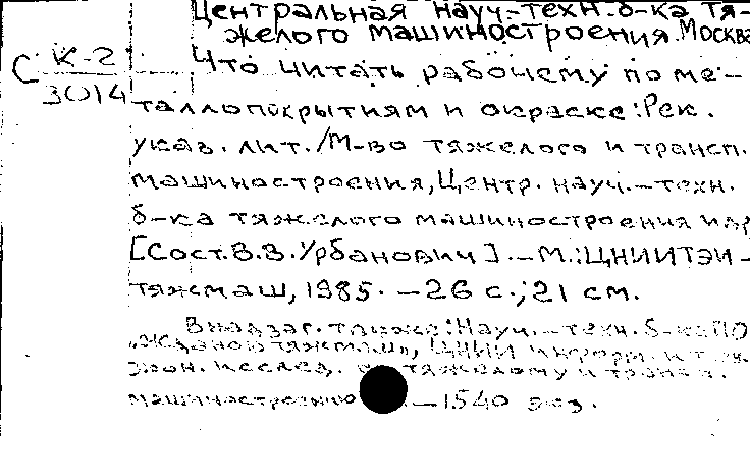 Центральная науч.-техн. б-ка тя-
желого машиностроения. Москва
С К-2
3014
Что читать рабочему по ме-
таллопокрытиям и окраске: Рек.
указ. лит. /М-во тяжелого и трансп.
машиностроения, Центр. науч.-техн.
б-ка тяжелого машиностроения и др.
[Сост. В.В. Урбанович]. -М.: ЦНИИТЭИ-
тяжмаш, 1985. -26 с.; 21 см.
В надзаг. также: Науч.-техн. б-ка ПО
"Ждановтяжмаш", ЦНИИ информ. и тех.-
экон. исслед. по тяжелому и трансп.
машиностроению -1540 экз.